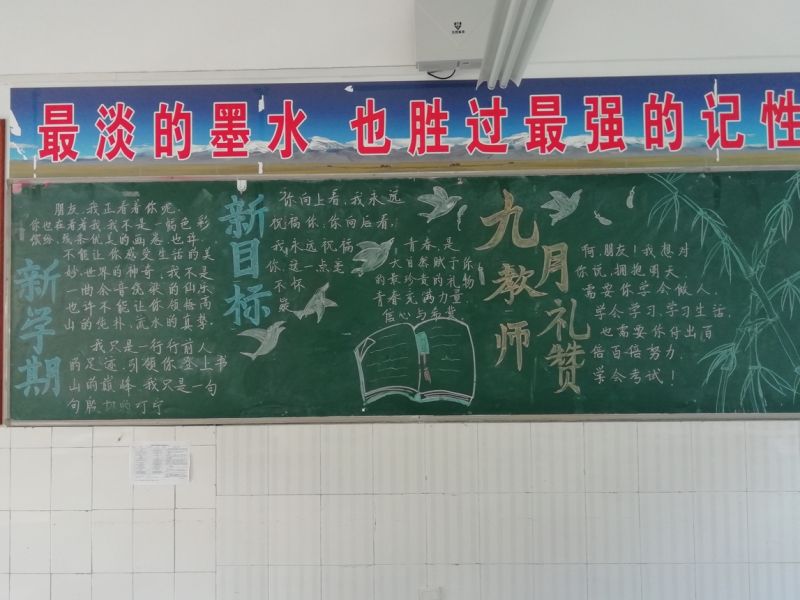 最淡的墨水 也胜过最强的记性
新学期
朋友,我正看着你呢。
你也在看着我我不是一幅色彩
缤纷,线条优美的画卷,也许
不能让你感受生活的美
妙,世界的神奇,我不是
一曲余音绕梁的仙乐
也许不能让你领悟高
山的纯朴,流水的真挚。
我只是一行行前人
的足迹,引领你登上书
山的巅峰,我只是一句
句殷切的叮咛
新目标
你向上看,我永远
祝福你,你向后看,
我永远祝福
你,这一点定
不怀
青春是
大自然赋于你
的最珍贵的礼物
青春充满力量,
信心与希望
九月礼赞
教师
阿,朋友!我想对
你说,拥抱明天,
需要你学会做人,
学会学习,学习生活,
也需要你付出百
倍百倍努力,
学会考试!